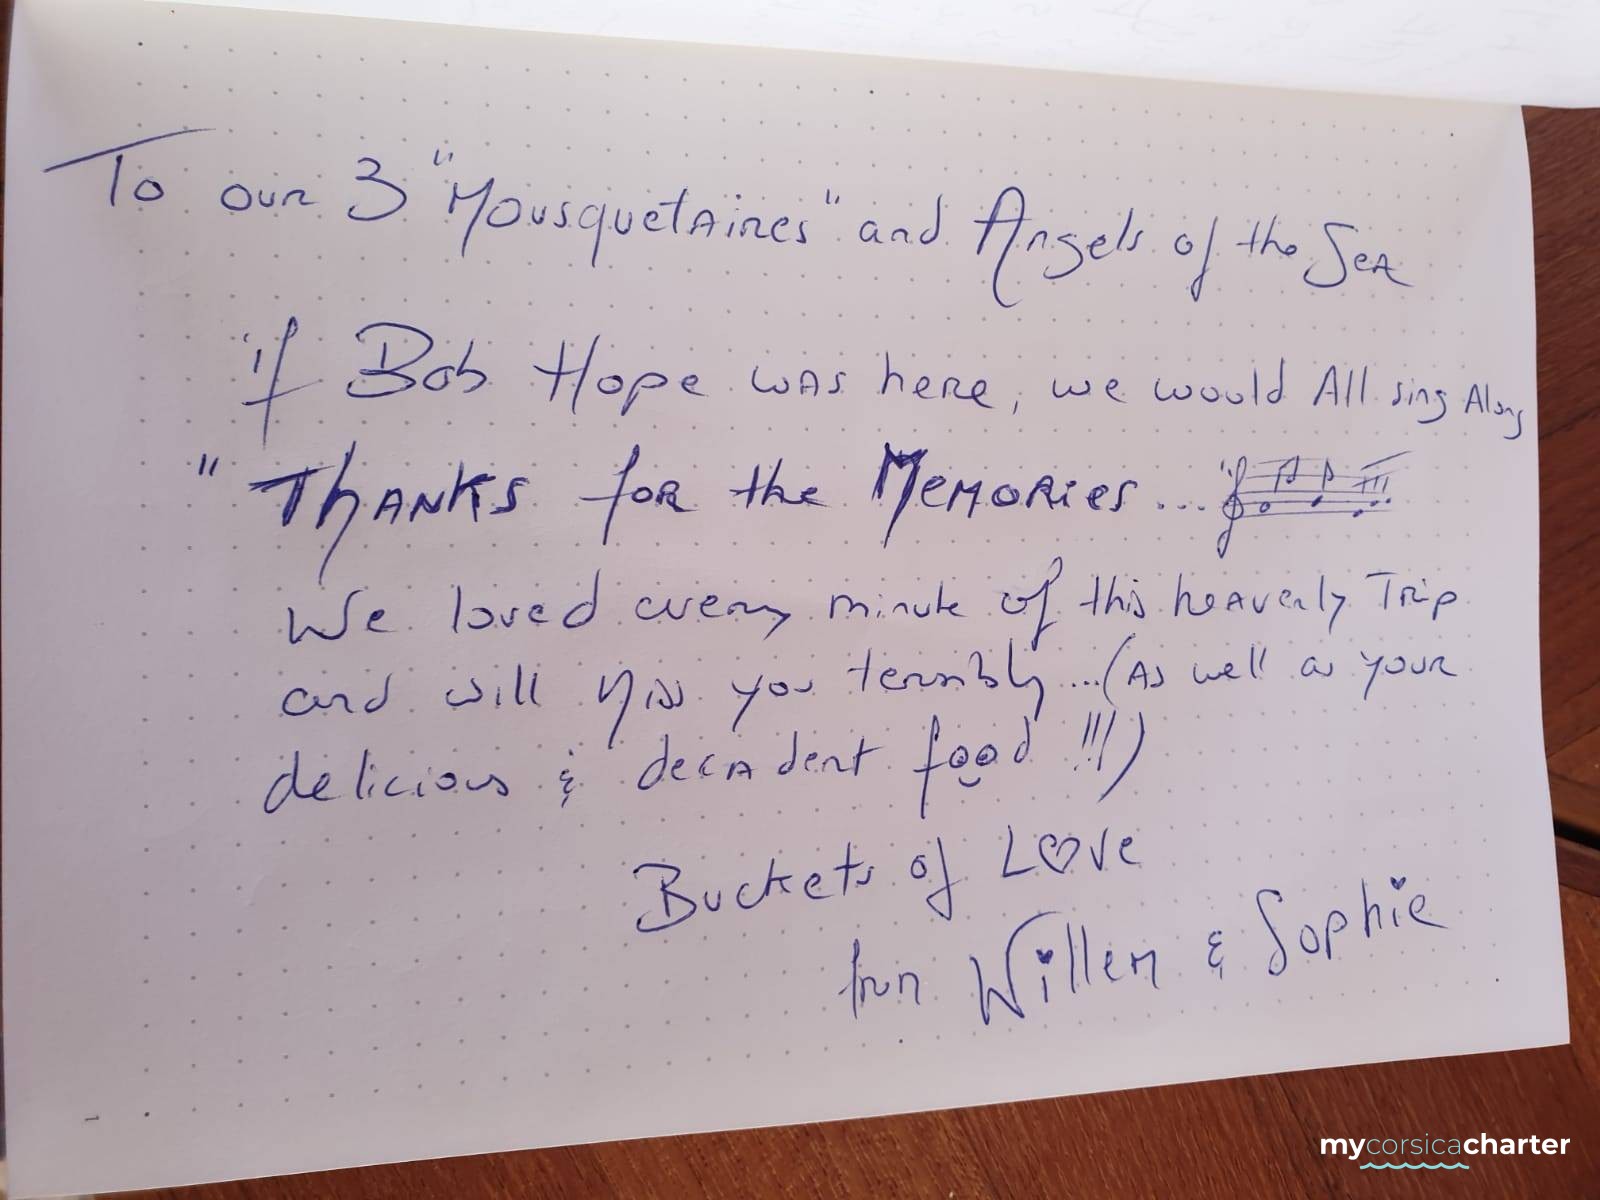 To our 3 "Mousquetaires" and Angels of the Sea
if Bob Hope was here, we would All sing Along
"Thanks for the Memories...
We loved every minute of this heavenly Trip
and will miss you terribly...(As well as your
delicious & decadent food !!!)
Buckets of Love
from Willem & Sophie
mycorsicacharter